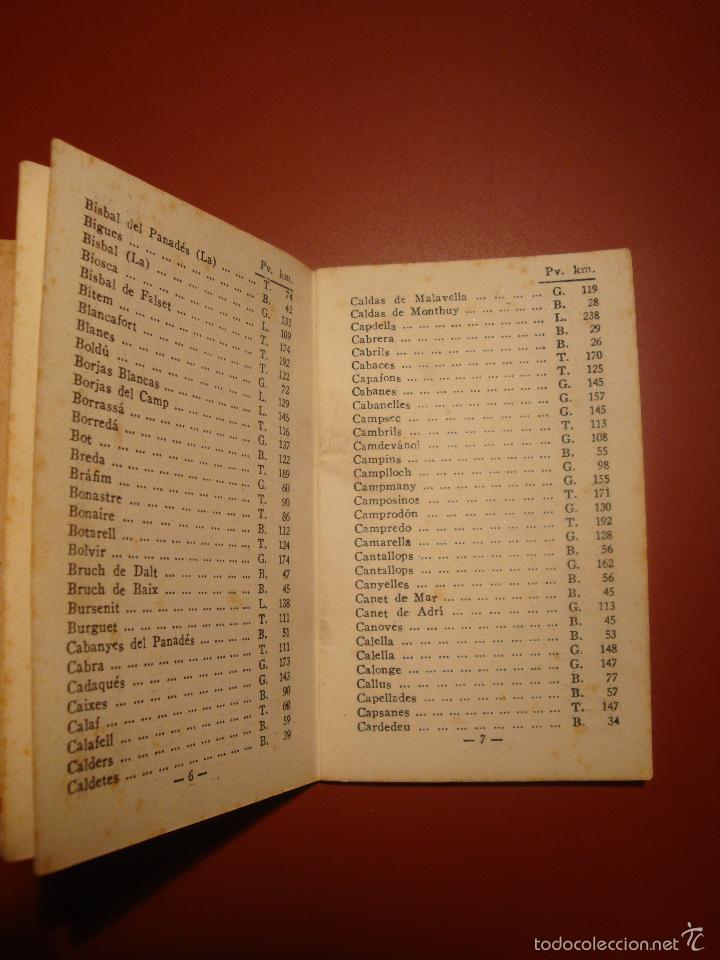 Pv. km.
Bisbal del Panadés (La) ... ... T. 74
Bigues ... ... ... ... ... ... B. 42
Bisbal (La) ... ... ... ... ... G. 131
Biosca ... ... ... ... ... ... L. 109
Bisbal de Falset ... ... ... ... T. 174
Bitem ... ... ... ... ... ... T. 192
Blancafort ... ... ... ... ... T. 122
Blanes ... ... ... ... ... ... G. 72
Boldú ... ... ... ... ... ... L. 129
Borjas Blancas ... ... ... ... L. 145
Borjas del Camp ... ... ... ... T. 116
Borrassá ... ... ... ... ... ... G. 137
Borredá ... ... ... ... ... ... B. 122
Bot ... ... ... ... ... ... ... T. 189
Breda ... ... ... ... ... ... G. 60
Bráfim ... ... ... ... ... ... T. 90
Bonastre ... ... ... ... ... ... T. 86
Bonaire ... ... ... ... ... ... B. 112
Botarell ... ... ... ... ... ... T. 124
Bolvir ... ... ... ... ... ... G. 174
Bruch de Dalt ... ... ... ... ... B. 47
Bruch de Baix ... ... ... ... ... B. 45
Bursenit ... ... ... ... ... ... L. 138
Burguet ... ... ... ... ... ... T. 111
Cabanyes del Panadés ... ... ... B. 51
Cabra ... ... ... ... ... ... T. 111
Cadaqués ... ... ... ... ... ... G. 173
Caixes ... ... ... ... ... ... G. 143
Calaf ... ... ... ... ... ... B. 90
Calafell ... ... ... ... ... ... T. 60
Calders ... ... ... ... ... ... B. 59
Caldetes ... ... ... ... ... ... B. 39
— 6 —
Pv. km.
Caldas de Malavella ... ... ... ... G. 119
Caldas de Montbuy ... ... ... ... B. 28
Capdella ... ... ... ... ... ... L. 238
Cabrera ... ... ... ... ... ... B. 29
Cabrils ... ... ... ... ... ... B. 26
Cabaces ... ... ... ... ... ... T. 170
Capafons ... ... ... ... ... ... T. 125
Cabanes ... ... ... ... ... ... G. 145
Cabanelles ... ... ... ... ... ... G. 157
Campsec ... ... ... ... ... ... G. 145
Cambrils ... ... ... ... ... ... T. 113
Camdevánol ... ... ... ... ... ... G. 108
Campins ... ... ... ... ... ... B. 55
Camplloch ... ... ... ... ... ... G. 98
Campmany ... ... ... ... ... ... G. 155
Camposinos ... ... ... ... ... ... T. 171
Camprodón ... ... ... ... ... ... G. 130
Campredo ... ... ... ... ... ... T. 192
Camarella ... ... ... ... ... ... G. 128
Cantallops ... ... ... ... ... ... B. 56
Cantallops ... ... ... ... ... ... G. 162
Canyelles ... ... ... ... ... ... B. 56
Canet de Mar ... ... ... ... ... B. 45
Canet de Adrí ... ... ... ... ... G. 113
Canoves ... ... ... ... ... ... B. 45
Calella ... ... ... ... ... ... B. 53
Calella ... ... ... ... ... ... G. 148
Calonge ... ... ... ... ... ... G. 147
Callus ... ... ... ... ... ... B. 77
Capellades ... ... ... ... ... ... B. 57
Capsanes ... ... ... ... ... ... T. 147
Cardedeu ... ... ... ... ... ... B. 34
— 7 —
todocoleccion.net
tc